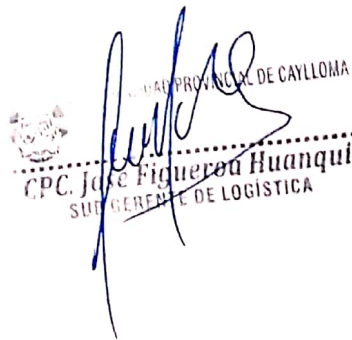 PROVINCIAL DE CAYLLOMA
CPC. José Figueroa Huanqui
SUB GERENTE DE LOGÍSTICA